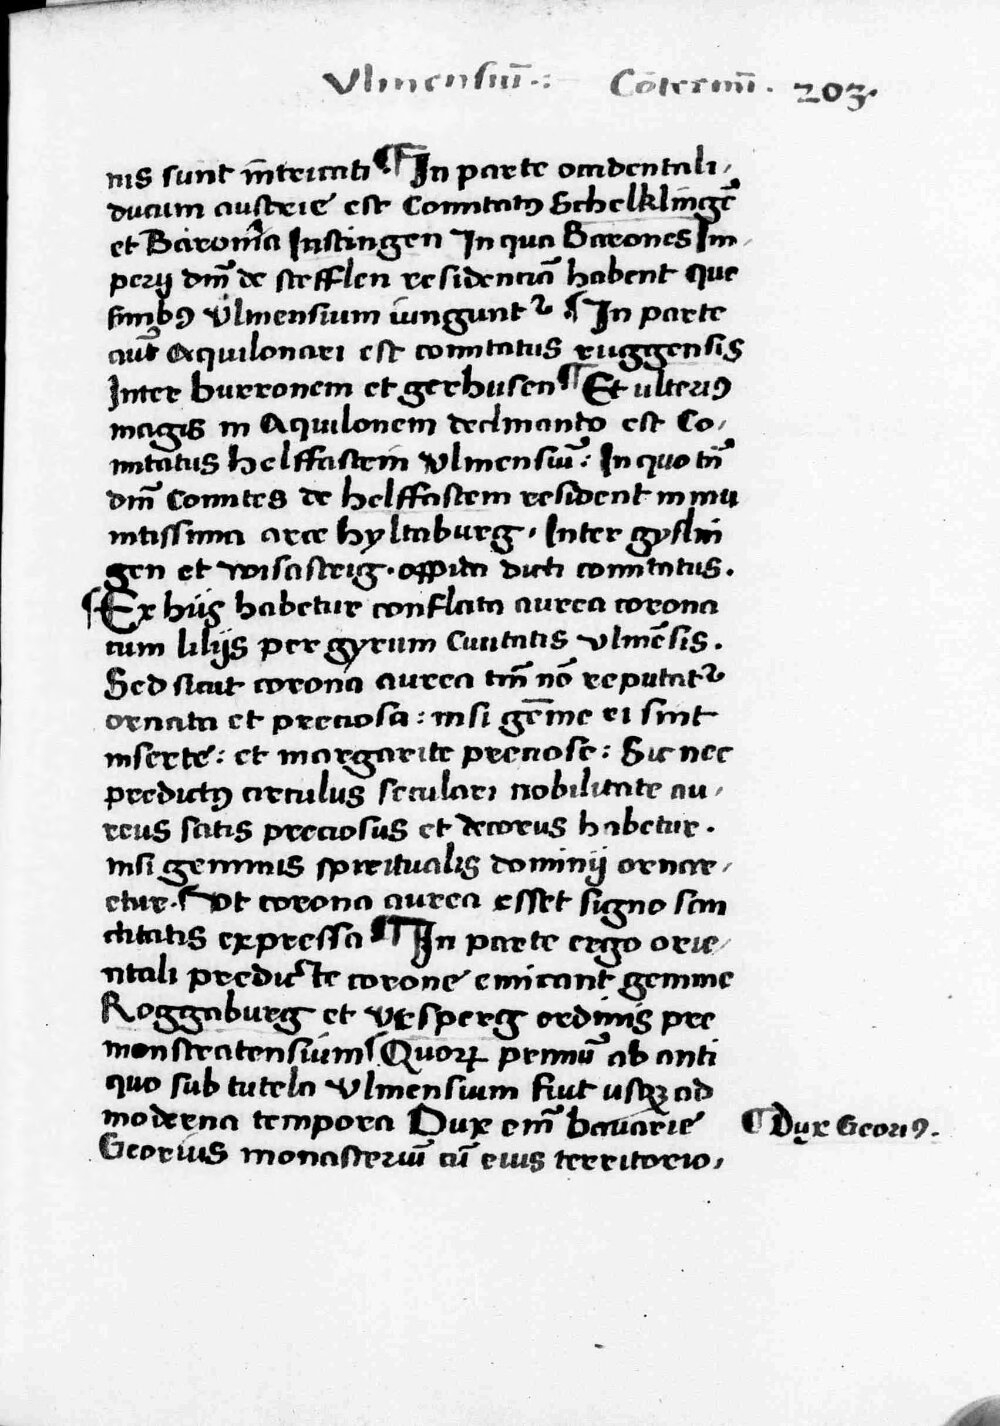 Vlmensiū.: Cōtermī. 203.
nis sunt īntricati ¶ In parte occidentali
ducum austrie est Comitatꝰ Schelklingē
et Baronia Iustingen In qua Barones Im
perij dm̄ de stefflen residenciā habent que
finibꝰ Vlmensium iungunt᷑ ¶ In parte
aut̄ Aquilonari est comitatus ruggensis
Inter burronem et gerhusen ¶ Et ulteriꝰ
magis in Aquilonem declinando est Co
mitatus helffastein Vlmensiū: In quo tn̄
dm̄ Comites de helffastem resident in mu
nitissima arce hyltaburg. Inter gyslin
gen et wisasteig. oppida dicti comitatus.
¶ Ex hijs habetur conflata aurea corona
cum lilijs per gyrum Ciuitatis vlmēsis.
Sed sicut corona aurea tm̄ nō reputat᷑
ornata et preciosa: nisi gēme ei sint
inserte: et margarite preciose: Sic nec
predictꝰ circulus seculari nobilitate au
reus satis preciosus et decorus habetur.
nisi gemmis spiritualis dominij ornar
etur. Vt corona aurea esset signo san
ctitatis expressa ¶ In parte ergo orie
ntali predicte corone emicant gemme
Roggaburg et vrsperg ordinis pre
monstratensium ¶ Quoꝝ primū ab anti
quo sub tutela Vlmensium fuit usqꝫ ad
moderna tempora Dux em̄ bauarie
Georius monasteriū cū eius territorio,
¶ Dux Georiꝰ.